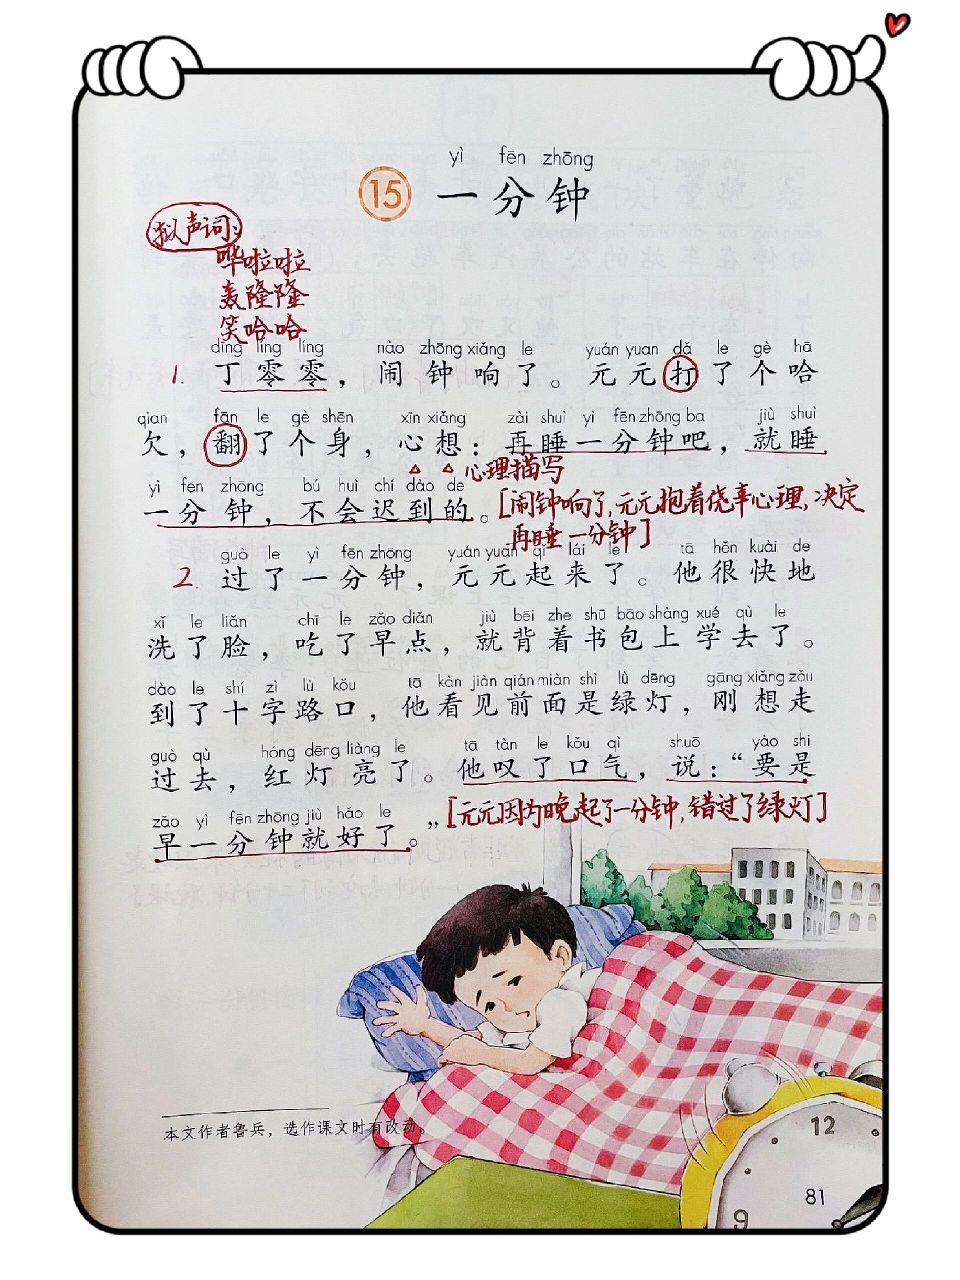 yì fēn zhōng
15 一分钟
拟声词:
哗啦啦
轰隆隆
笑哈哈
dīng líng líng nào zhōng xiǎng le yuán yuan dǎ le gè hā
1. 丁零零，闹钟响了。元元打了个哈
qian fān le gè shēn xīn xiǎng zài shuì yì fēn zhōng ba jiù shuì
欠，翻了个身，心想：再睡一分钟吧，就睡
心理描写
yì fēn zhōng bú huì chí dào de
一分钟，不会迟到的。[闹钟响了,元元抱着侥幸心理,决定
再睡一分钟]
guò le yì fēn zhōng yuán yuan qǐ lái le tā hěn kuài de
2. 过了一分钟，元元起来了。他很快地
xǐ le liǎn chī le zǎo diǎn jiù bēi zhe shū bāo shàng xué qù le
洗了脸，吃了早点，就背着书包上学去了。
dào le shí zì lù kǒu tā kàn jiàn qián miàn shì lǜ dēng gāng xiǎng zǒu
到了十字路口，他看见前面是绿灯，刚想走
guò qù hóng dēng liàng le tā tàn le kǒu qì shuō yào shi
过去，红灯亮了。他叹了口气，说：“要是
zǎo yì fēn zhōng jiù hǎo le
早一分钟就好了。”[元元因为晚起了一分钟,错过了绿灯]
本文作者鲁兵，选作课文时有改动。
12
9
81